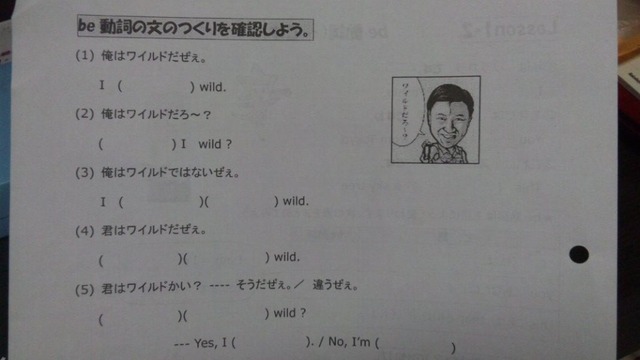 be 動詞の文のつくりを確認しよう。
(1) 俺はワイルドだぜぇ。
I ( ) wild.
(2) 俺はワイルドだろ～？
( ) I wild ?
ワイルドだろ～？
(3) 俺はワイルドではないぜぇ。
I ( )( ) wild.
(4) 君はワイルドだぜぇ。
( )( ) wild.
(5) 君はワイルドかい？ ---- そうだぜぇ。／ 違うぜぇ。
( )( ) wild ?
--- Yes, I ( ). / No, I'm ( )